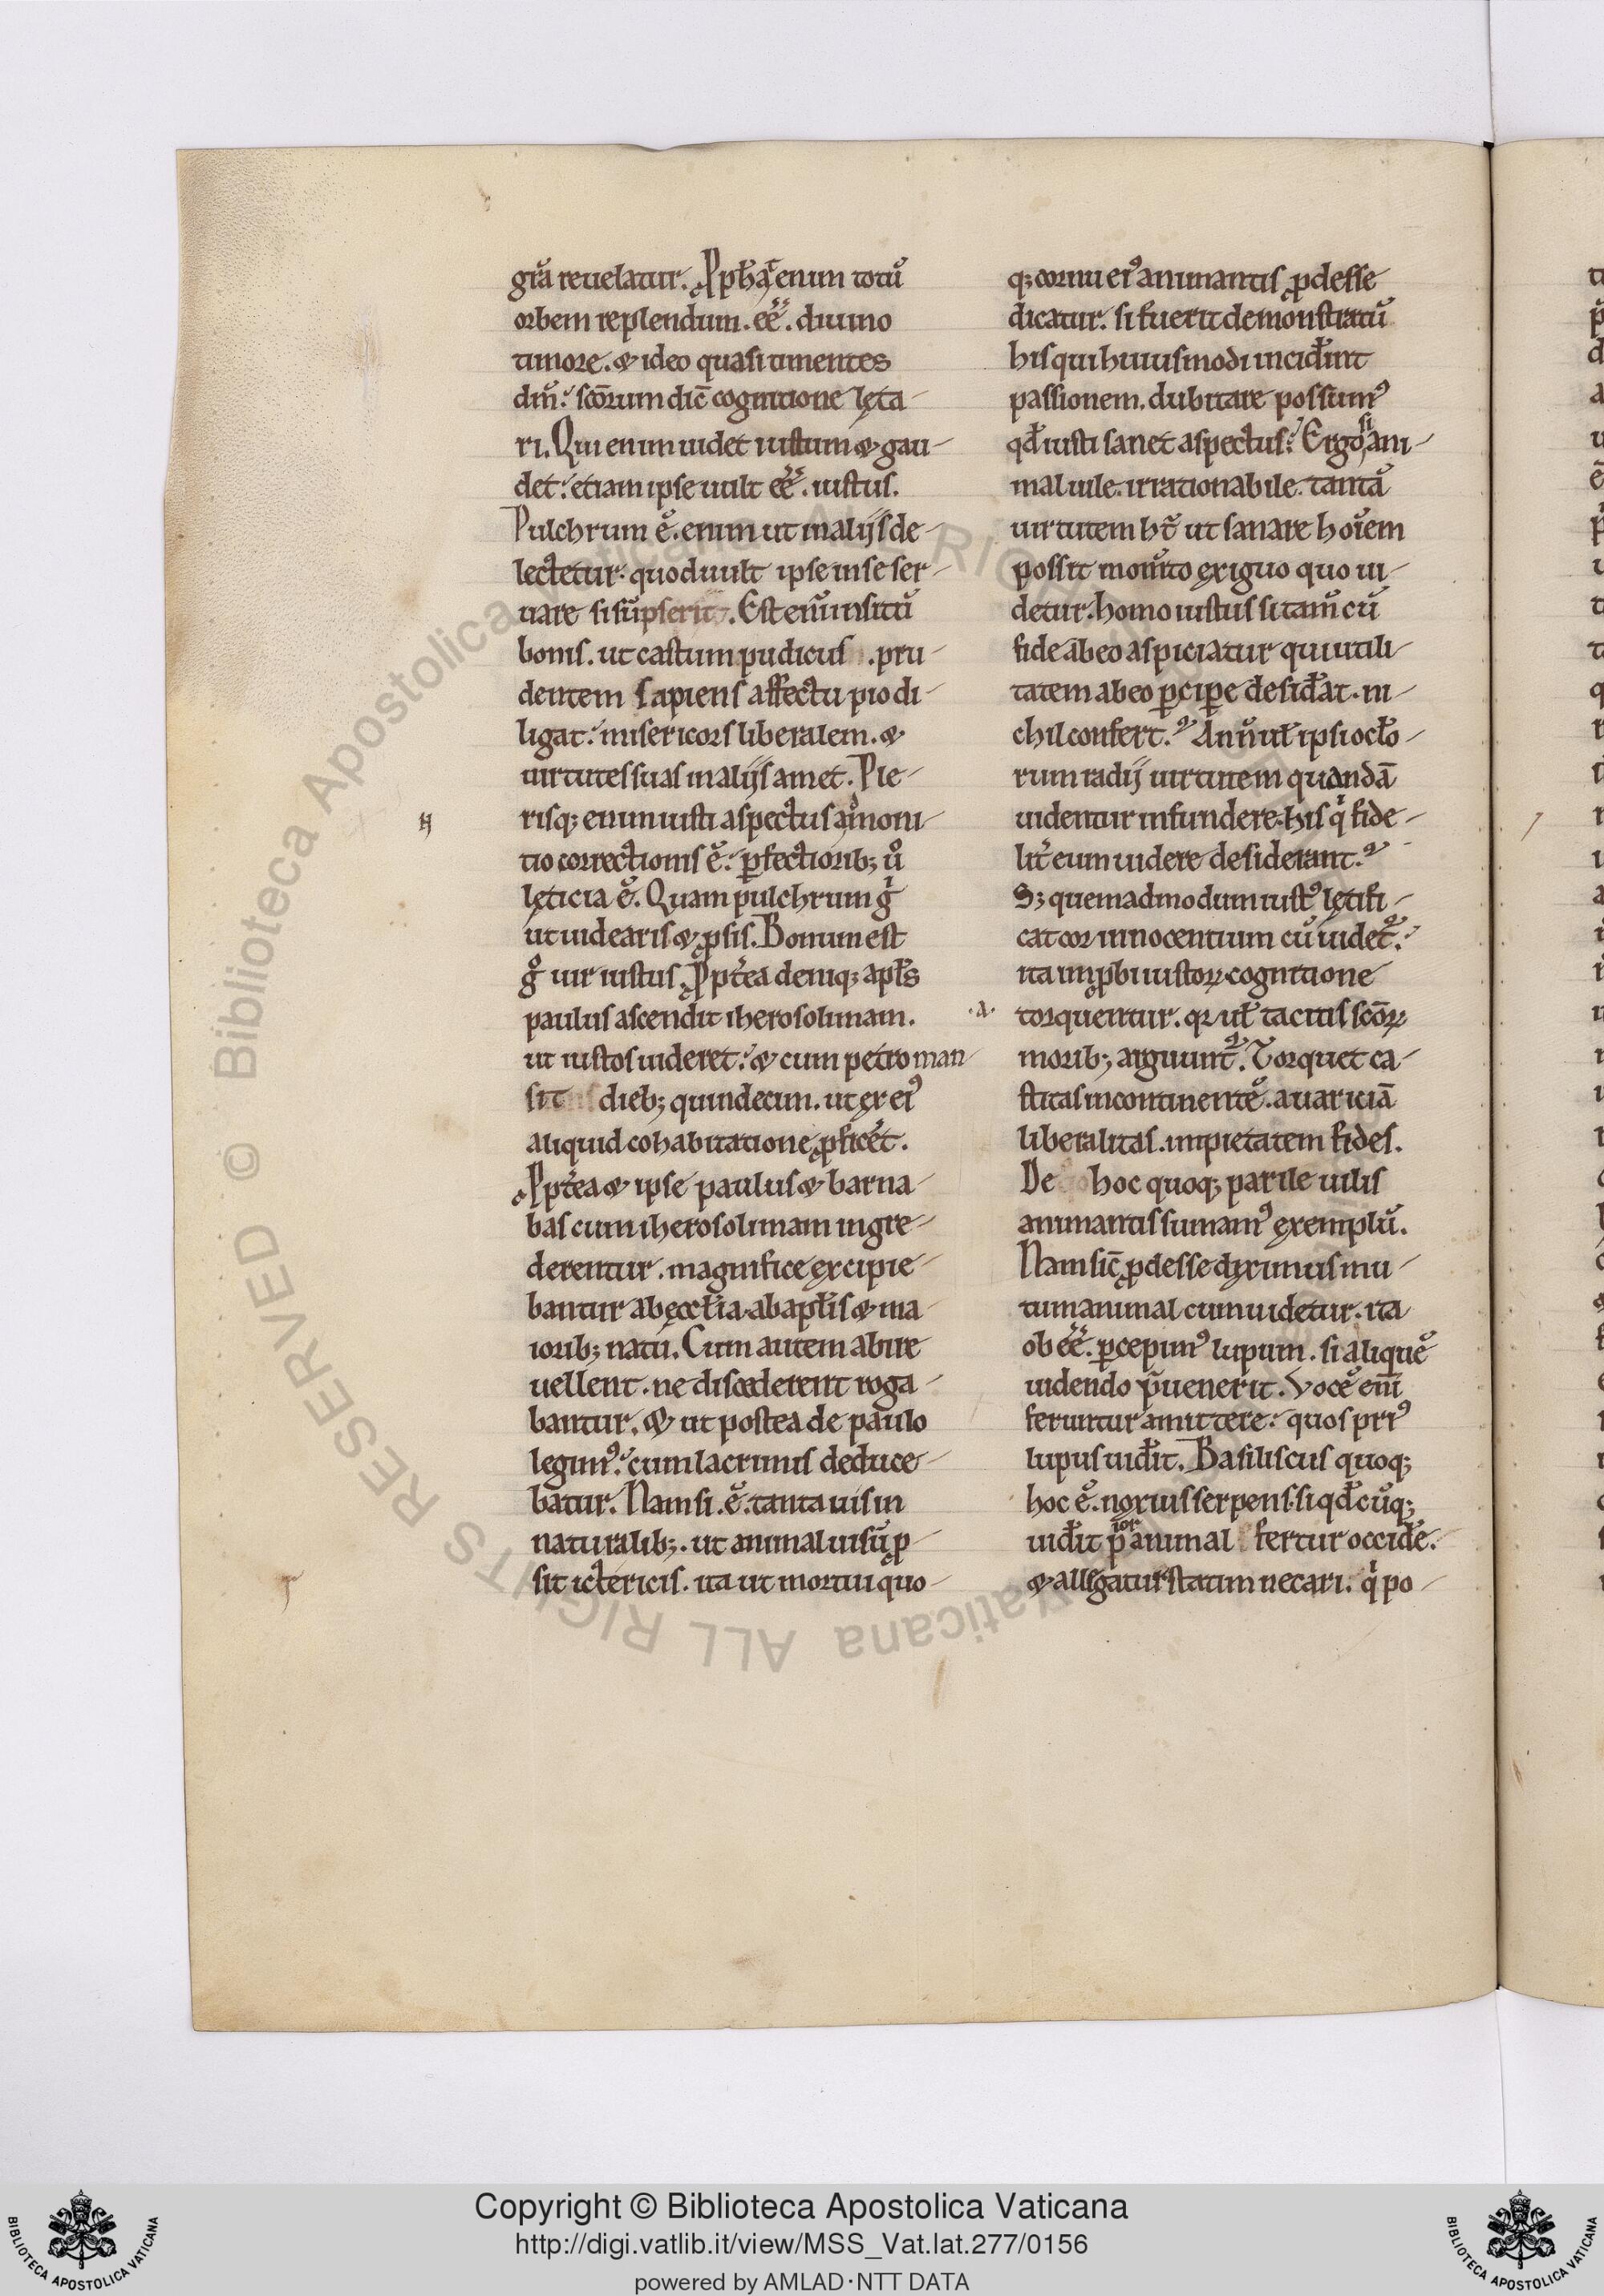 gr̄a reuelatur. Pph̄a enim totū
orbem replendum. eē. diuino
timore. & ideo quasi timentes
dm̄. sc̄orum dic̄ cognitione lęta-
ri. Qui enim uidet iustum & gau-
det. etiam ipse uult eē. iustus.
Pulchrum ē. enim ut in alijs de-
lectetur. quod uult ipse in se ser-
uare si sūpserit. Est enī insitū
bonis. ut castum pudicus . pru-
dentem sapiens affectu pio di-
ligat. misericors liberalem. &
uirtutes suas in alijs amet. Ple-
risq; enim iusti aspectus amoni-
tio correctionis ē. ꝑfectiorib; ůo
lęticia ē. Quam pulchrum gͥ
ut uidearis & ꝓsis. Bonum est
gͦ uir iustus. Ppt̄ea deniq; apl̄s
paulus ascendit iherosolimam.
ut iustos uideret. & cum petro man
sit dieb; quindecim. ut ex ei⁹
aliquid cohabitatione ꝓficēt.
Ppt̄ea & ipse paulus & barna-
bas cum iherosolimam ingre-
derentur. magnifice excipie-
bantur ab ęccl̄ia. ab apl̄is & ma-
iorib; natu. Cum autem abire
uellent. ne discederent roga-
bantur. & ut postea de paulo
legim⁹. cum lacrimis deduce-
batur. Nam si. ē. tanta uis in
naturalib;. ut animal uisū ꝓ-
sit ictericis. ita ut mortui quo-
q; cornu ei⁹ animantis ꝓdesse
dicatur. si fuerit demonstratū
his qui huiusmodi incid̄int
passionem. dubitare possum⁹
qd̄ iusti sanet aspectus. Ergo si ani-
mal uile. irrationabile. tantā
uirtutem ht̄ ut sanare hoīem
possit mom̄to exiguo quo ui-
detur. homo iustus si tam̄ cū
fide ab eo aspiciatur qui utili-
tatem ab eo ꝑcipe desid̄at. ni-
chil confert. An n̄ ul̄ ipsi ocl̄o-
rum radij uirtutem quandā
uidentur infundere. his qͥ fide-
lit̄ eum uidere desiderant.
S; quemadmodum iust⁹ lętifi-
cat cor innocentium cū uidet².
ita imꝓbi iustoꝝ cognitione
.a. torquentur. qr ul̄ tacitis sc̄oꝝ
morib; arguunt². Torquet ca-
stitas incontinentē. auariciā
liberalitas. impietatem fides.
De hoc quoq; parile uilis
animantis sumam⁹ exemplū.
Nam sic̄ ꝓdesse diximus mu-
tum animal cum uidetur. ita
obeē. ꝑcepim⁹ lupum. si aliquē
uidendo p̄uenerit. Vocē enī
feruntur amittere. quos pri⁹
lupus uid̄it. Basiliscus quoq;
hoc ē. noxius serpens. si qd̄cūq;
uid̄it p̄ ior animal fertur occid̄e.
& allegatur statim necari. qͥ po-
Copyright © Biblioteca Apostolica Vaticana
http://digi.vatlib.it/view/MSS_Vat.lat.277/0156
powered by AMLAD·NTT DATA
© Biblioteca Apostolica Vaticana ALL RIGHTS RESERVED
BIBLIOTECA APOSTOLICA VATICANA
BIBLIOTECA APOSTOLICA VATICANA